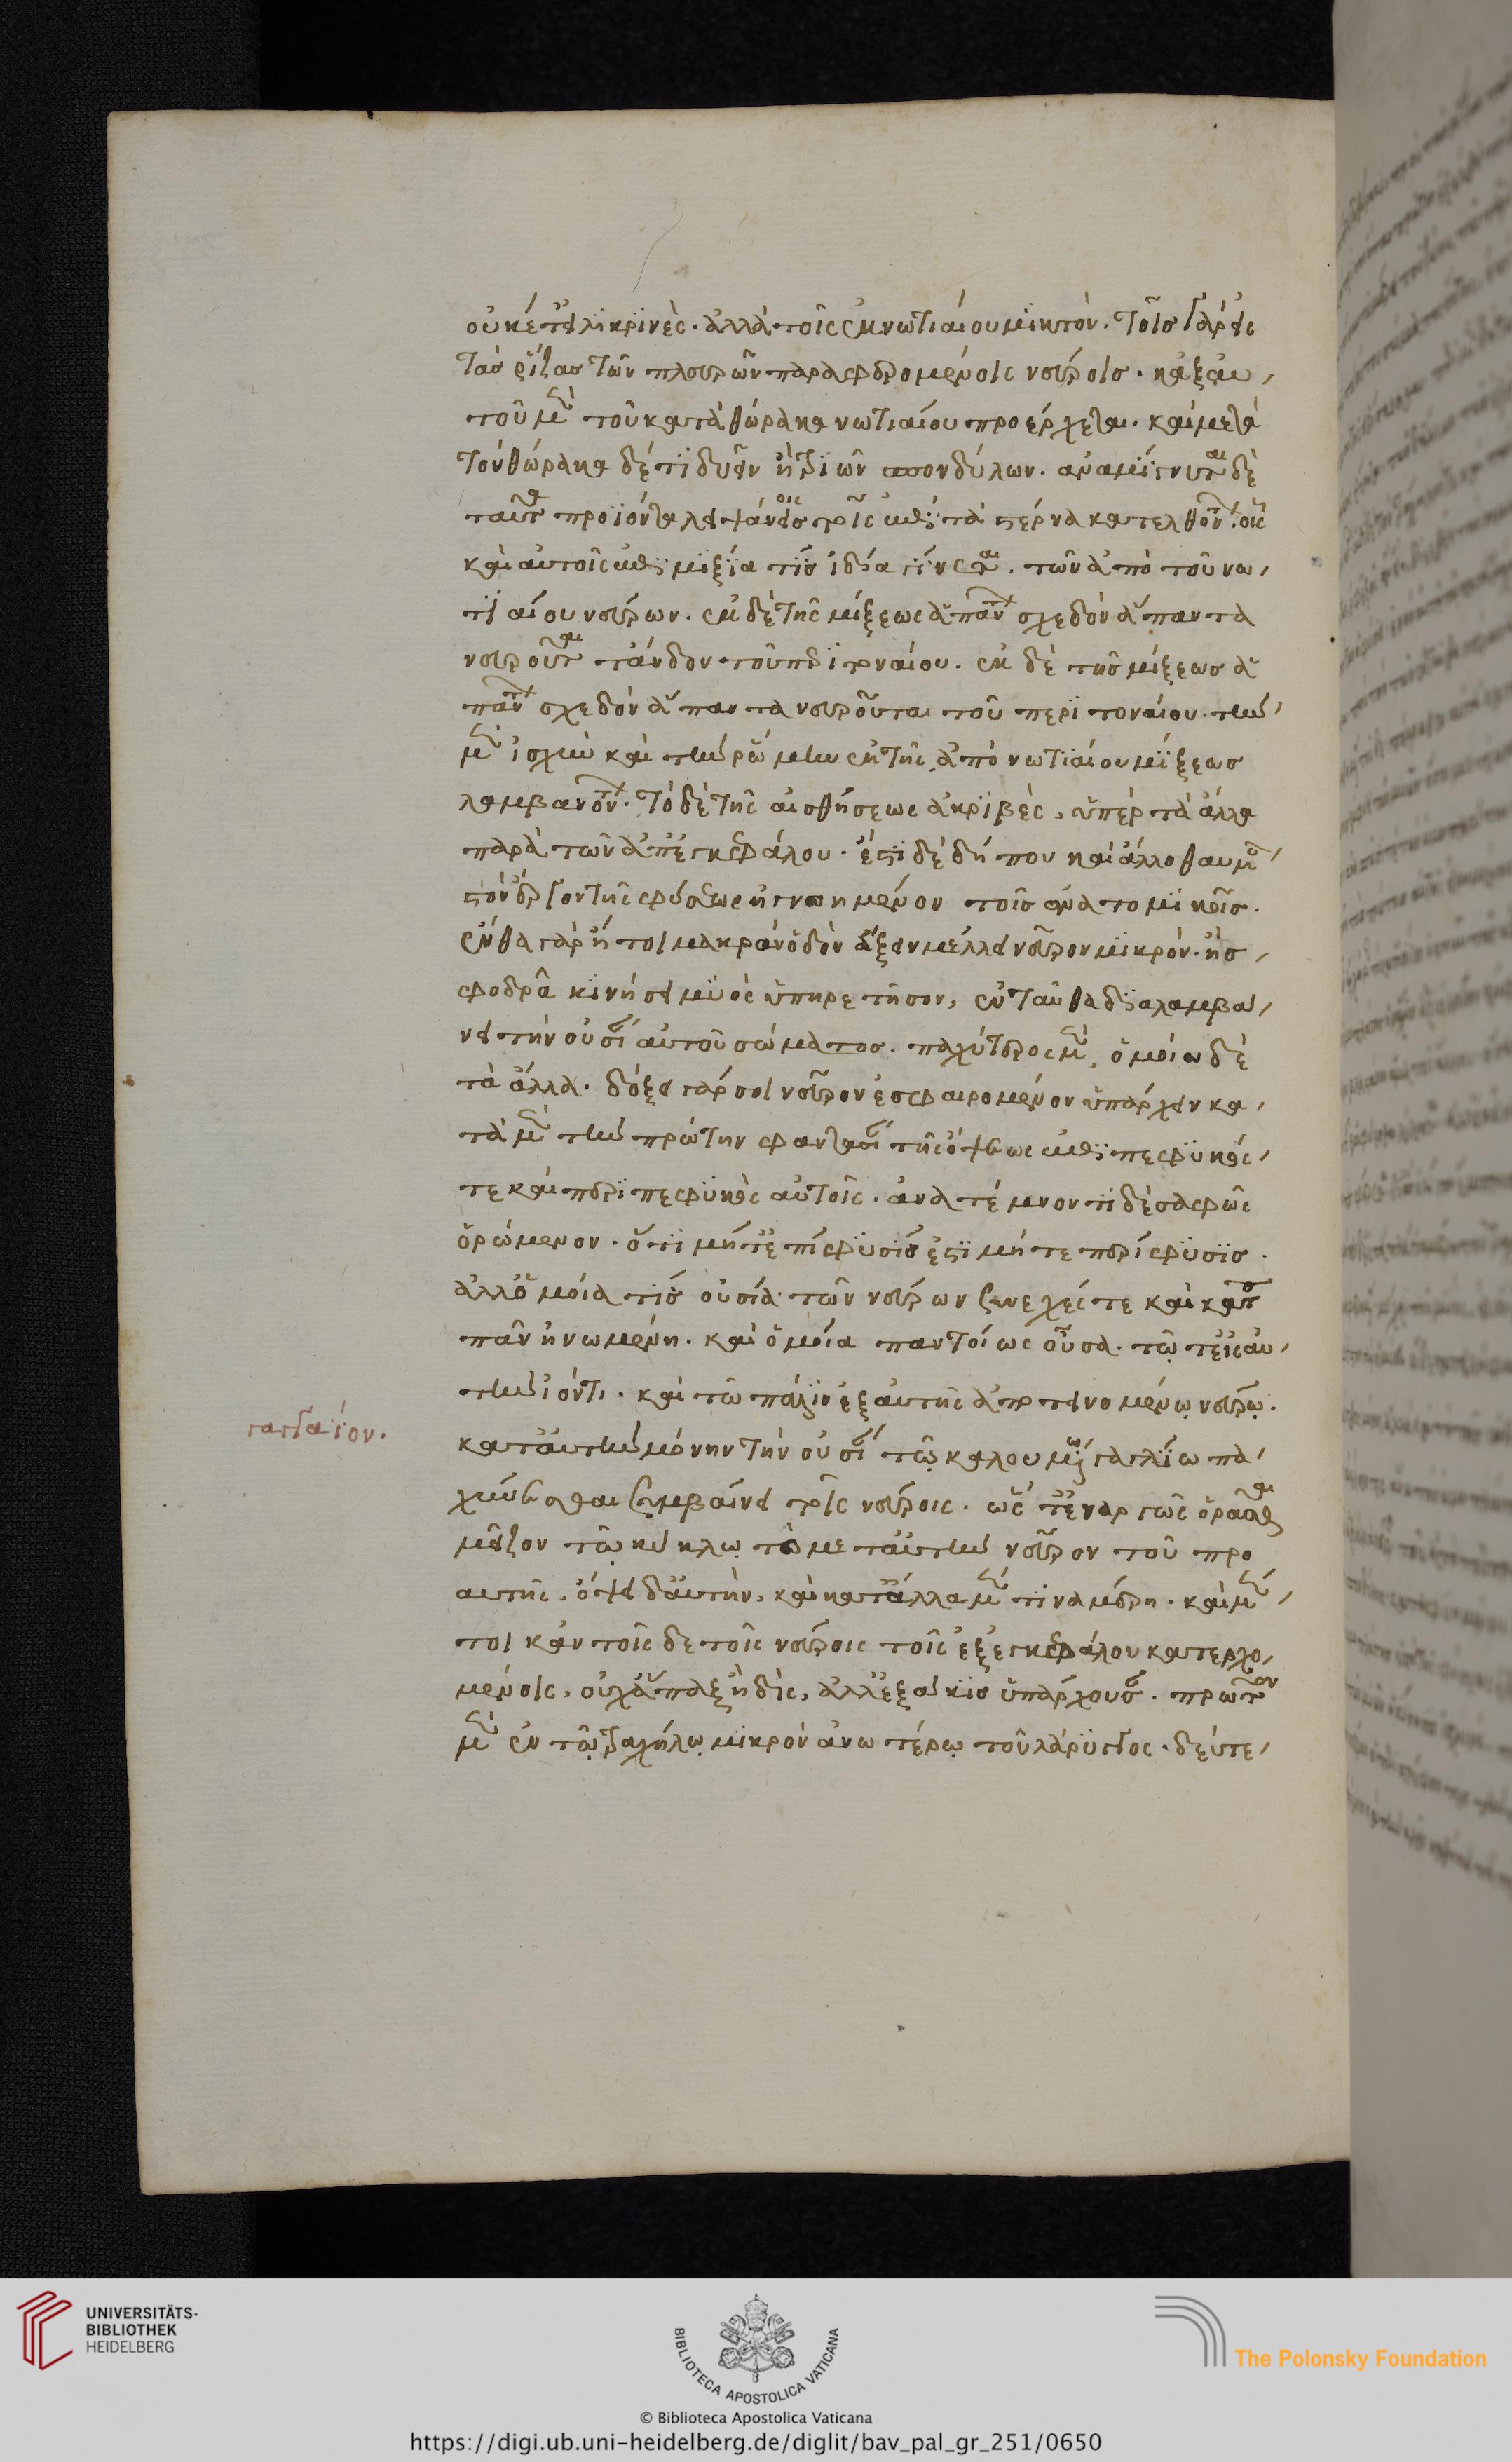 οὐκέτ' εἰλικρινὲς. ἀλλὰ τοῖς ἐκ νωτιαίου μικτόν. τοῖς γὰρ εἰς
τὰς ῥίζας τῶν πλευρῶν παραφερομένοις νεύροις. κἀξ ἐκ
τοῦ μὲν τοῦ κατὰ θώρακα νωτιαίου προέρχεται. καὶ μετὰ
τὸν θώρακα δέ τι δυεῖν ἢ τριῶν σπονδύλων. ἀναμίγνυται δὲ
ταῦτα προϊόντα λειψάνοις τοῖς ἐπὶ τὰ στέρνα κατελθοῦσιν. οἷς
καὶ αὐτοῖς ἐπιμιξία τις ἰδία γίνεται. τῶν ἀπὸ τοῦ νω
τιαίου νεύρων. ἐκ δὲ τῆς μίξεως ἁπάντων σχεδὸν ἅπαντα
νευροῦται τἄνδον τοῦ περιτοναίου. ἐκ δὲ τῆς μίξεως ἁ
πάντων σχεδὸν ἅπαντα νευροῦται τοῦ περιτοναίου. τὴν
μὲν ἰσχὺν καὶ τὴν ῥώμην ἐκ τῆς ἀπὸ νωτιαίου μίξεως
λαμβανόντων. τὸ δὲ τῆς αἰσθήσεως ἀκριβὲς, ὑπὲρ τὰ ἄλλα
παρὰ τῶν ἀπ' ἐγκεφάλου. ἔστι δὲ δή που καὶ ἄλλο θαυμα
στὸν ἔργον τῆς φύσεως ἠγνοημένον τοῖς ἀνατομικοῖς.
ἔνθα γὰρ ἤτοι μακρὰν ὁδὸν ἄξειν μέλλει νεῦρον μικρόν. ἢ σ
φοδρᾷ κινήσει μυὸς ὑπηρετῆσον, ἐνταῦθα διαλαμβά
νει τὴν οὐσίαν αὐτοῦ σώματος. παχύτερος μὲν, ὁμοίω δὲ
τὰ ἄλλα. δόξει γάρ σοι νεῦρον ἐσφαιρομένον ὑπάρχειν κα
τὰ μὲν τὴν πρώτην φαντασίαν τῆς ὄψεως ἐπιπεφυκός
τε καὶ περιπεφυκὸς αὐτοῖς. ἀνατέμνοντι δὲ σαφῶς
ὁρώμενον. ὅτι μήτ' ἐπίφυσίς ἐστι μήτε περίφυσις.
ἀλλ' ὁμοία τις οὐσία τῶν νεύρων συνεχές τε καὶ κατὰ
πᾶν ἡνωμένη. καὶ ὁμοία παντοίως οὖσα. τῷ τε εἰς αὐ
τὴν ἰόντι. καὶ τῷ πάλιν ἐξ αὐτῆς ἀποτεινομένῳ νεύρῳ.
κατ' αὐτὴν μόνην τὴν οὐσίαν τῷ καλουμένῳ γαγλίῳ πα
χύνεσθαι συμβαίνει τοῖς νεύροις. ὥστ' ἐναργῶς ὁρᾶσθαι
μεῖζον τῷ κύκλῳ τὸ μετ' αὐτὴν νεῦρον τοῦ πρὸ
αὐτῆς. ὄψει δ' αὐτὴν, καὶ κατ' ἄλλα μὲν τινα μέρη. καὶ μὲν
τοι κἀν τοῖς δε τοῖς νεύροις τοῖς ἐξ ἐγκεφάλου κατερχο
μένοις, οὐχ ἅπαξ ἢ δὶς, ἀλλ' ἑξάκις ὑπάρχουσαν. πρῶτον
μὲν ἐν τῷ τραχήλῳ μικρὸν ἀνωτέρω τοῦ λάρυγγος. δεύτε
γαγγαίον.
UNIVERSITÄTS-
BIBLIOTHEK
HEIDELBERG
BIBLIOTECA APOSTOLICA VATICANA
The Polonsky Foundation
© Biblioteca Apostolica Vaticana
https://digi.ub.uni-heidelberg.de/diglit/bav_pal_gr_251/0650